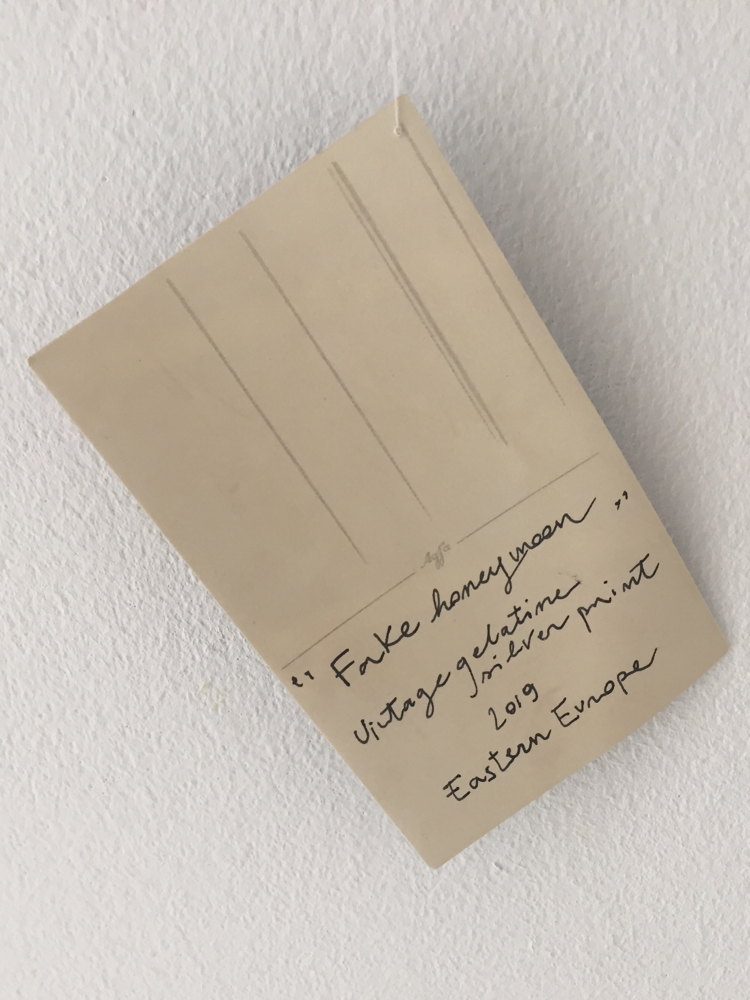 "Fake honeymoon"
Vintage gelatine
silver print
2019
Eastern Europe